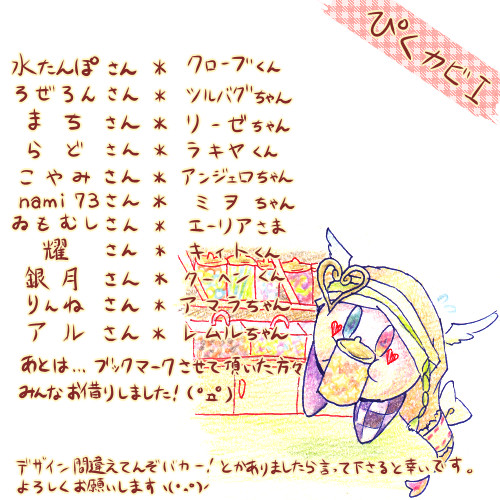 ぴくカビI
水たんぽさん * クローブくん
ろぜろんさん * ツルバグちゃん
まちさん * リーゼちゃん
らどさん * ラキヤくん
こやみさん * アンジェロちゃん
nami73さん * ミヲちゃん
ゐもむしさん * エーリアさま
耀さん * キイトくん
銀月さん * クーヘンくん
りんねさん * アマラちゃん
アルさん * レムルちゃん
あとは… ブックマークさせて頂いた方々
みんなお借りしました! (°д°)
デザイン間違えてんぞバカー! とかありましたら言って下さると幸いです。
よろしくお願いします ヽ(・∀・)ノ